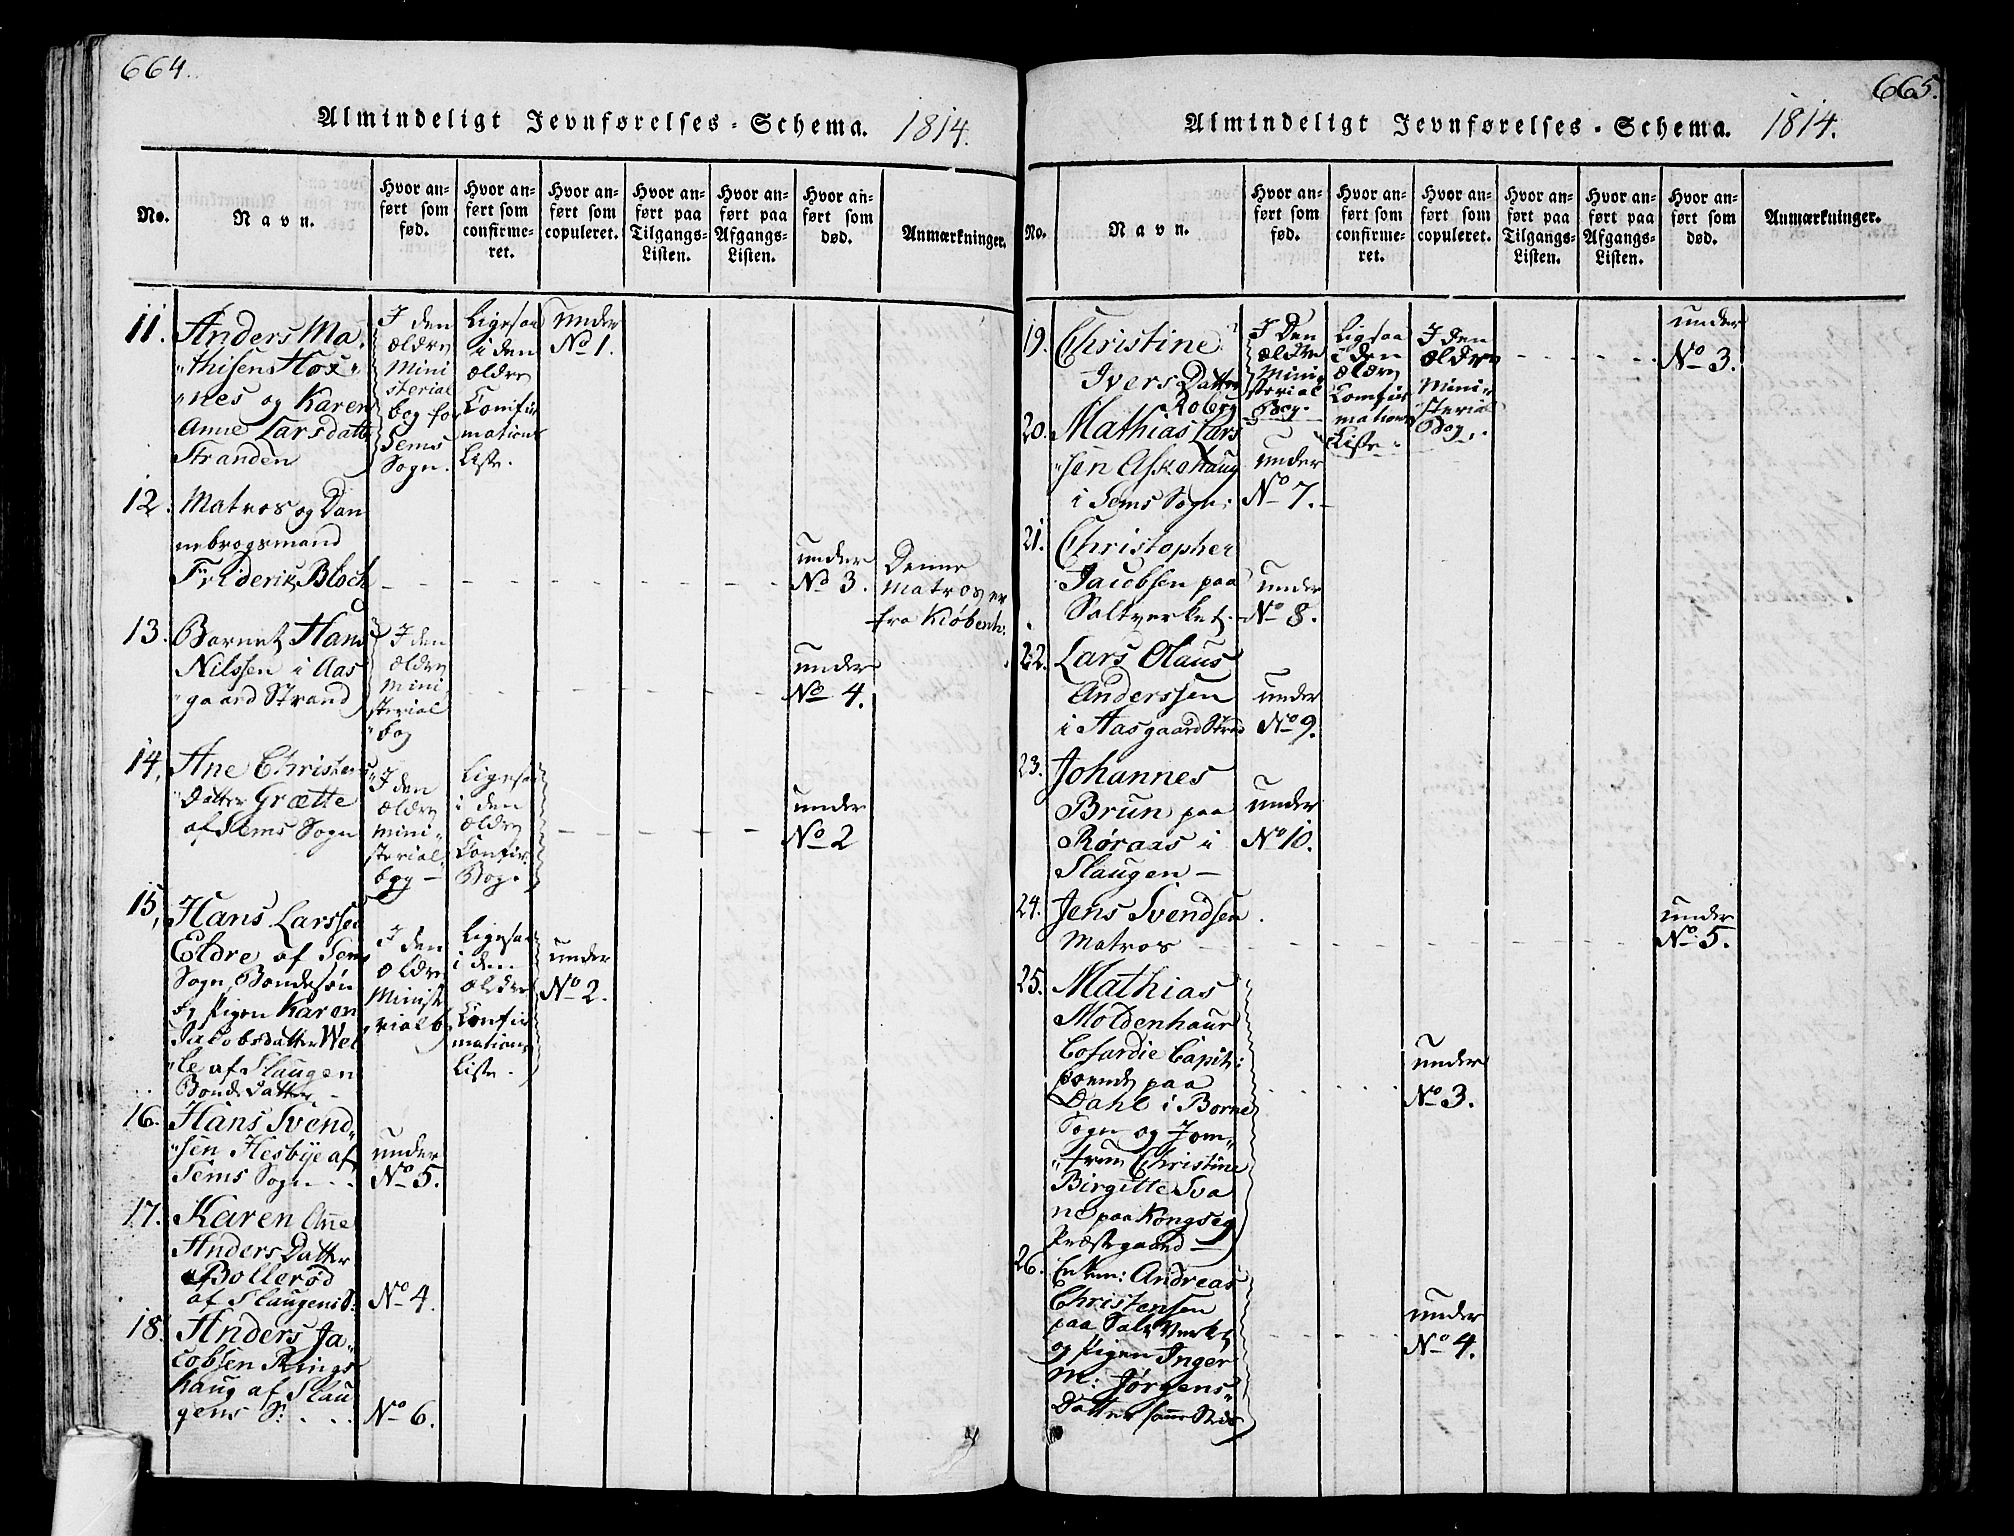 664.
Almindeligt Jevnførelses-Schema. 1814.
No.
Navn.
Hvor an-
ført som
fød.
Hvor an-
ført som
confirme-
ret.
Hvor an-
ført som
copuleret.
Hvor an-
ført paa
Tilgangs-
Listen.
Hvor an-
ført paa
Afgangs-
Listen.
Hvor an-
ført som
død.
Anmærkninger.
11. Anders Ma-
"thisen Hox"
"nes og Karen
Anne Larsdatte
Stranden
I den
ældre
Mini
sterial
bog for
Sems
Sogn.
Ligesaa
i den
ældre
Confir
mations
Liste.
under
No 1.
12. Matros og Dan
nebrogsmand
Friderik Bloch
under
No 3.
Denne
Matros er
fra Kiøbenh:
13. Barnet Hans
Nilssen i Aas
"gaard Strand
I den
ældre
Mini
sterial
"bog
under
No 4.
14. Ane Christens
"Datter Grætte
af Sems Sogn
I den
ældre
Mini"
sterial
bog —
Ligesaa
i den
ældre
Confir.
Bog.
under
No 2
15, Hans Larssen
Eldre af Sems
Sogn, Bondesøn
og Pigen Karen
Jacobsdatter Wel
"le af Slaugen
Bonde Datter. -
I den
ældre
Ministe
rial b.
Ligesaa
i den
ældre
Confir
mations
Liste.
under
No 2.
16. Hans Svend"
"sen Hesbye af
Sems Sogn - -
under
No 5.
17. Karen Ane
Anders Datter
Bollerød
af Slaugens S:
No 4.
18. Anders Ja"
cobsen Rings
haug af Slau
gens S: . . .
No 6.
665.
Almindeligt Jevnførelses-Schema. 1814.
No.
Navn.
Hvor an-
ført som
fød.
Hvor an-
ført som
confirme-
ret.
Hvor an-
ført som
copuleret.
Hvor an-
ført paa
Tilgangs-
Listen.
Hvor an-
ført paa
Afgangs-
Listen.
Hvor an-
ført som
død.
Anmærkninger.
19. Christine
Ivers Datter
Roberg
I Den
ældre
Mini"
sterial
Bog.
Ligesaa
i den
ældre
Confir
mations
Liste.
I den
ældre
Mini"
sterial
Bog.
under
No 3.
20. Mathias Lars
"sen Askehaug
i Sems Sogn.
under
No 7.
21. Christopher
Jacobsen paa
Saltverket.
under
No 8.
22. Lars Olaus
Anderssen
i Aasgaard Strand
under
No 9.
23. Johannes
Brun paa
Røraas i
Slaugen —
under
No 10.
24. Jens Svendsen
Matros
under
No 5.
25. Mathias
Moldenhaur
Cofardie Capit:
boende paa
Dahl i Borne
Sogn og Jom"
"fru Christine
Birgitte Sva
ne paa Kongseg
Præstegaard —
under
No 3.
26. Enkem: Andreas
Christensen
paa Salt Verket
og Pigen Inger
M: Jørgens"
Datter samme Sted
under
No 4.